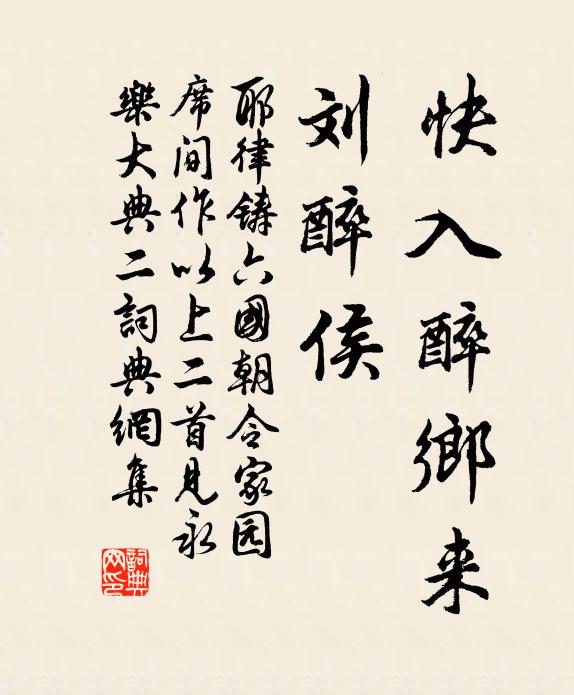 快入醉鄉来
刘醉侯
耶律鑄六國朝令家园
席间作以上二首見永
樂大典二詞典網集
詞典网印